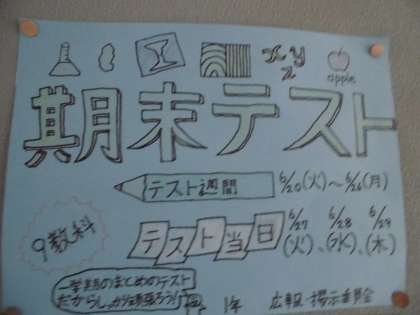 x y
z
apple
期末テスト
テスト週間 6/20(火)~6/26(月)
9教科
テスト当日 6/27(火)、6/28(水)、6/29(木)
一学期のまとめのテスト
だからしっかり頑張ろう!!
1年 広報・掲示委員会